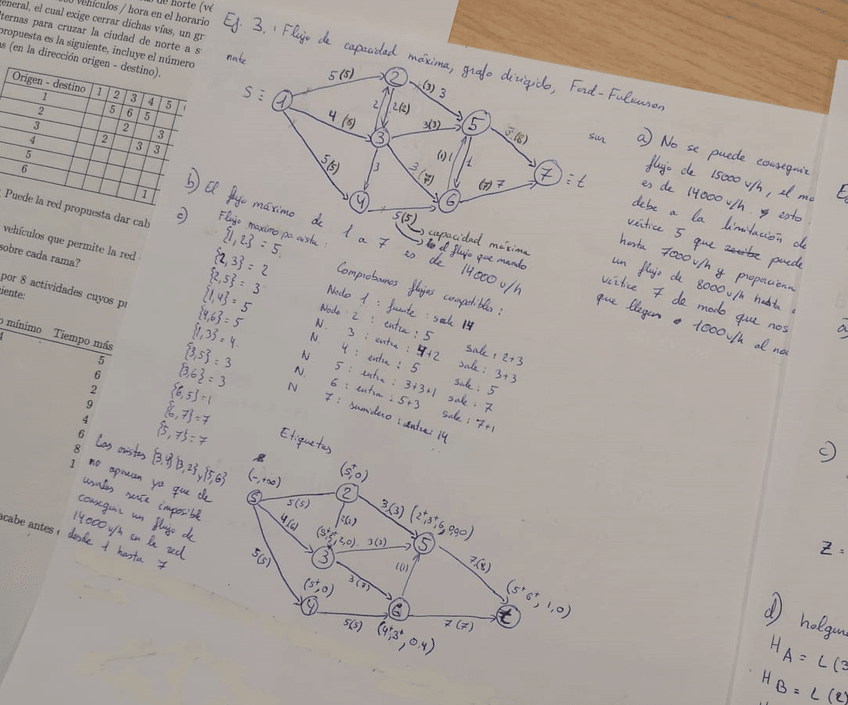 de norte (v
vehículos / hora en el horario
general, el cual exige cerrar dichas vías, un gr
ternas para cruzar la ciudad de norte a s
propuesta es la siguiente, incluye el número
s (en la dirección origen - destino).
Origen - destino 1 2 3 4 5
1 5 6 5
2 2 3
3 2 3 3
4
5
6 1
Puede la red propuesta dar cab
vehículos que permite la red
sobre cada rama?
por 8 actividades cuyos p
iente:
o mínimo Tiempo más
5
6
2
9
4
6
8
1
acabe antes
Ej. 3.: Flujo de capacidad máxima, grafo dirigido, Ford-Fulkerson
nate
S = 1
5(5)
2
(3) 3
4 (6)
2
2(2)
3
3(3)
5
7(8)
5(5)
3
3(7)
(1)1
1
7 = t
4
5(5)
6
(7) 7
capacidad máxima
el flujo que mando
b) El flujo máximo de 1 a 7 es de 14000 v/h
c) Flujo maximo por arista:
{1,2} = 5
{2,3} = 2
{2,5} = 3
{1,4} = 5
{4,6} = 5
{1,3} = 4
{3,5} = 3
{3,6} = 3
{6,5} = 1
{6,7} = 7
{5,7} = 7
Las aristas {3,4} {3,2} y {5,6}
no aparecen ya que de
usarlas sería imposible
conseguir un flujo de
14000 v/h en la red
desde 1 hasta 7
Comprobamos flujos compatibles:
Nodo 1: fuente: sale 14
Nodo 2: entra: 5 sale: 2+3
N. 3: entra: 4+2 sale: 3+3
N 4: entra: 5 sale: 5
N. 5: entra: 3+3+1 sale: 7
N 6: entra: 5+3 sale: 7+1
7: sumidero: entra: 14
sur
a) No se puede conseguir
flujo de 15000 v/h, el
es de 14000 v/h. y esto
debe a la limitación de
vértice 5 que puede
hasta 7000 v/h y proporciona
un flujo de 8000 v/h hasta
vértice 7 de modo que nos
que llegan 1000 v/h al no
Etiquetas
(-,+∞)
S
5(5)
2
(S⁺,0)
3(3)
(2⁺,3⁺,6⁺,0,0,0)
4(6)
2(2)
3
3(3)
5
7(8)
5(5)
(S⁺,0)
3(7)
1(1)
(5⁺6⁺, 1,0)
4
5(5)
6
7(7)
t
(4⁺,3⁺, 0,4)
c)
Z =
d) holgura
H_A = L(3
H_B = L(2)